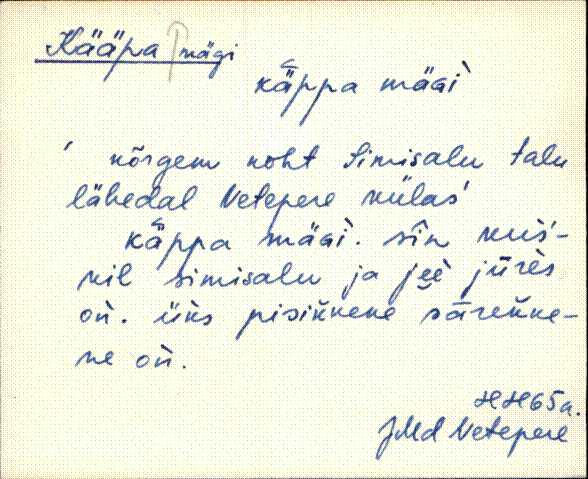 Kääpa mägi
kä̆ppa mäaì
' kõrgem koht Simisalu talu
lähedal Vetepere külas'
kä̆ppa mäaì. sîn kuś-
kil simisalu ja jeè jūrès
oǹ. üks pisikkene sārekke-
ne oǹ.
HH65a.
JMd Vetepere